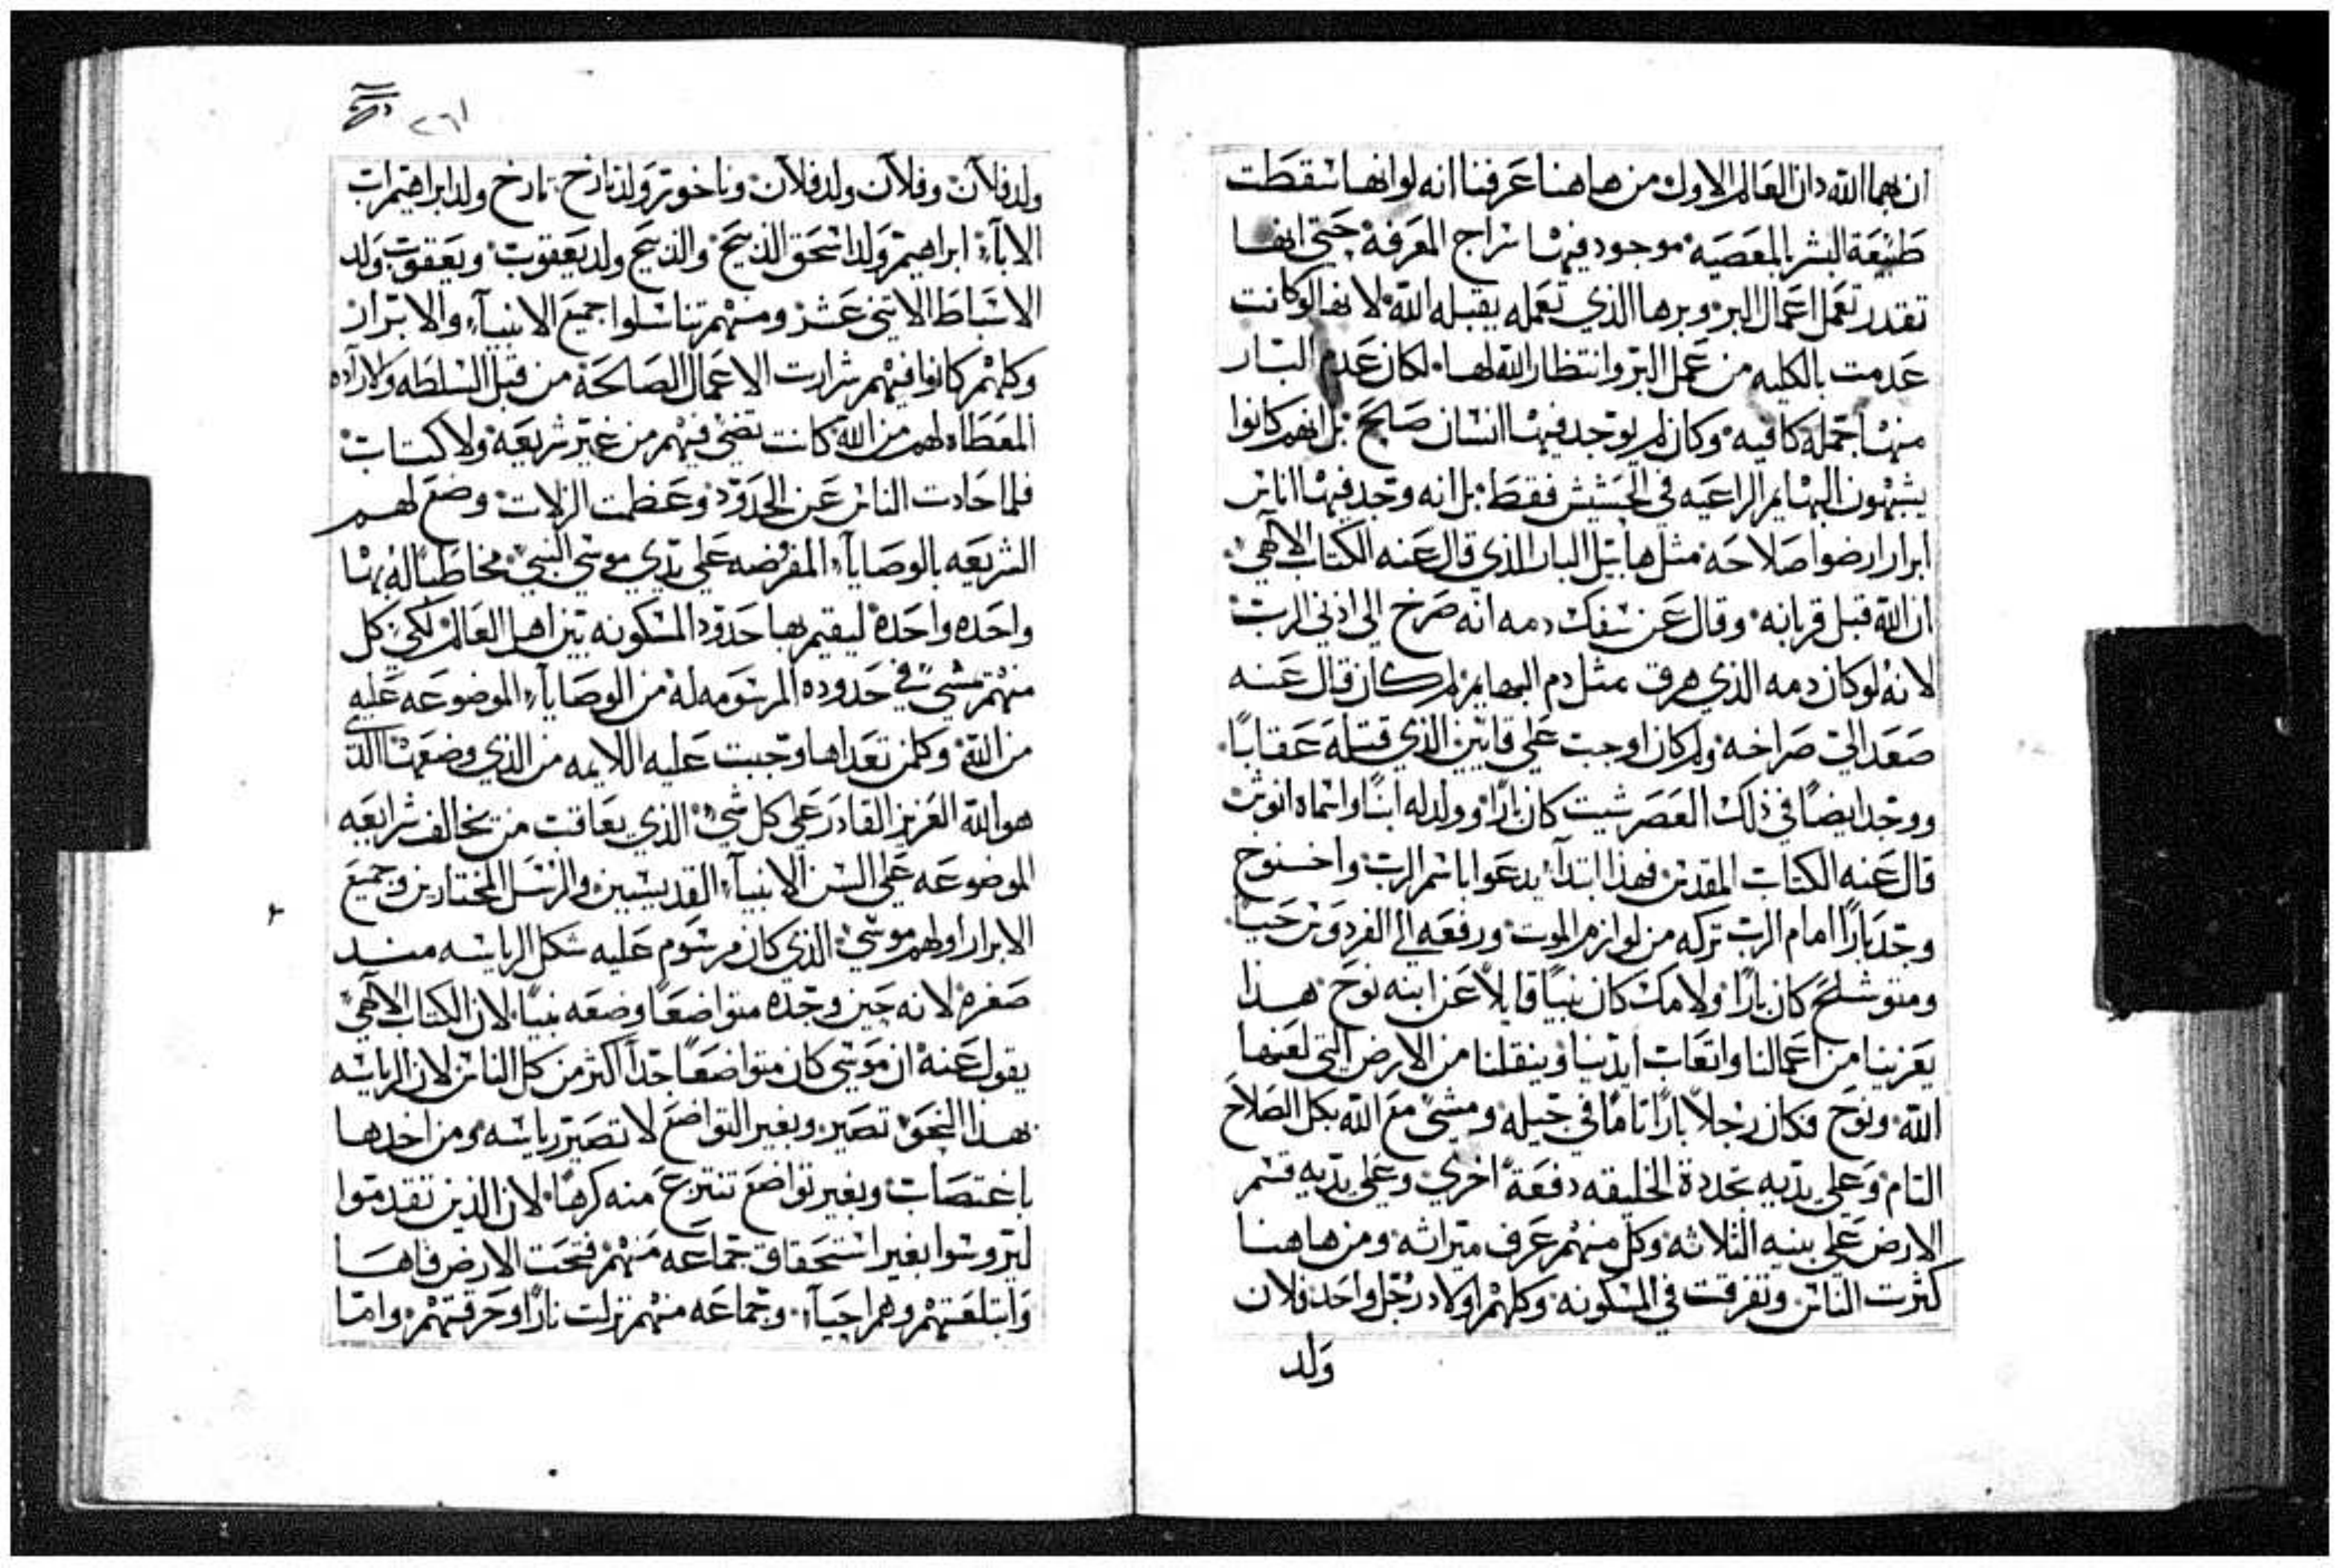 ان بهما الله دان العالم الاول من هاهنا عرفنا انه لو انها سقطت
طبيعة البشر بالمعصيه موجود فيها سراج المعرفة حتى انها
تقدر تعمل اعمال البر وبرها الذي تعمله يقبله الله لانها لو كانت
عدمت بالكليه من عمل البر وانتظار الله لها لكان عدم البار
منها جملة كافيه وكان لم يوجد فيها انسان صالح بل انهم كانوا
يشبهون البهايم الراعيه في الحشيش فقط بل انه وجد فيها اناس
ابرار ارضوا صلاحه مثل هابيل البار الذي قال عنه الكتاب الالهي
ان الله قبل قربانه وقال عن سفك دمه انه صرخ الى اذني الرب
لانه لو كان دمه الذي هرق مثل دم البهايم لم كان قال عنه
صعد الي صراخه ولم كان اوجب على قايين الذي قتله عقابًا
ووجد ايضًا في ذلك العصر شيت كان بارًا وولد له ابنًا واسماه انوش
قال عنه الكتاب المقدس فهذا ابتدآ يدعوا باسم الرب واخنوخ
وجد بارًا امام الرب تركه من لوازم الموت ورفعه الي الفردوس حيًا
ومتوشلح كان بارًا ولامك كان نبيًا قايلاً عن ابنه نوح هذا
يعزينا من اعمالنا واتعاب ايدينا وينقلنا من الارض التي لعنها
الله ونوح فكان رجلاً بارًا تامًا في جيله ومشي مع الله بكل الصلاح
التام وعلي يديه تجددة الخليقه دفعة اخري وعلي يديه قسم
الارض علي بنيه الثلاثه وكل منهم عرف ميراثه ومن هاهنا
كثرت الناس وتفرقت في المسكونه وكلهم اولاد رجل واحد فلان
ولد
٢٦١
ولد فلان وفلان ولد فلان وناخور ولد تارخ تارخ ولد ابراهيم اب
الابآء ابراهيم ولد اسحق الذبيح والذبيح ولد يعقوب ويعقوب ولد
الاسباط الاتني عشر ومنهم تناسلوا جميع الانبيآء والابرار
وكلهم كانوا فيهم شرارت الاعمال الصالحة من قبل السلطه والاراده
المعطاه لهم من الله كانت تضي فيهم من غير شريعة ولا كتاب
فلما حادت الناس عن الحدود وعظمت الزلات وضع لهم
الشريعه بالوصايآء المفرضه علي يدي موسي النبي مخاطبًا له بها
واحده واحدة ليقيم بها حدود المسكونه بين اهل العالم لكي كل
منهم يمشي في حدوده المرسومه له من الوصايآء الموضوعه عليه
من الله وكلمن تعداها وجبت عليه اللايمه من الذي وضعها الذي
هو الله العزيز القادر على كل شي الذي يعاقب من يخالف شرايعه
الموضوعه على السن الانبيآء القديسين والرسل المختارين وجميع
الابرار اولهم موسي الذي كان مرسوم عليه شكل الرياسه منذ
صغره لانه حين وجده متواضعًا وضعه نبيًا لان الكتاب الالهي
يقول عنه ان موسى كان متواضعًا جدًا اكثر من كل الناس لان الرياسه
بهذا النحو تصير وبغير التواضع لا تصير رياسه ومن اخدها
باغتصاب وبغير تواضع تنتزع منه كرهًا لان الذين تقدموا
ليتروسوا بغير استحقاق جماعه منهم فتحت الارض فاها
وابتلعتهم وهم احيآء وجماعه منهم نزلت نارًا وحرقتهم واما